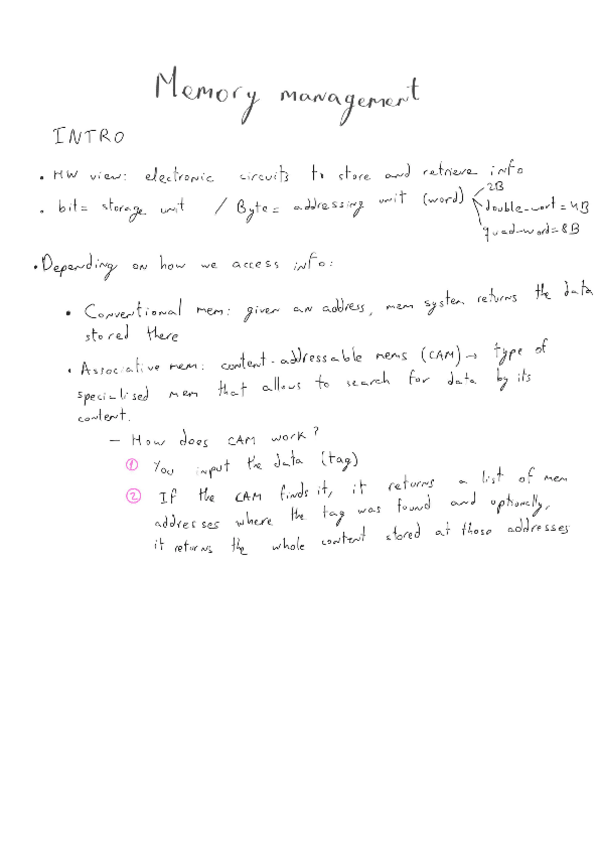 Memory management
INTRO
• HW view: electronic circuits to store and retrieve info
• bit = storage unit / Byte = addressing unit (word) 2B
double-wort = 4B
quad-word = 8B
• Depending on how we access info:
• Conventional mem: given an address, mem system returns the data
stored there
• Associative mem: content-addressable mems (CAM) → type of
specialised mem that allows to search for data by its
content.
– How does CAM work?
① You input the data (tag)
② If the CAM finds it, it returns a list of mem
addresses where the tag was found and optionally,
it returns the whole content stored at those addresses